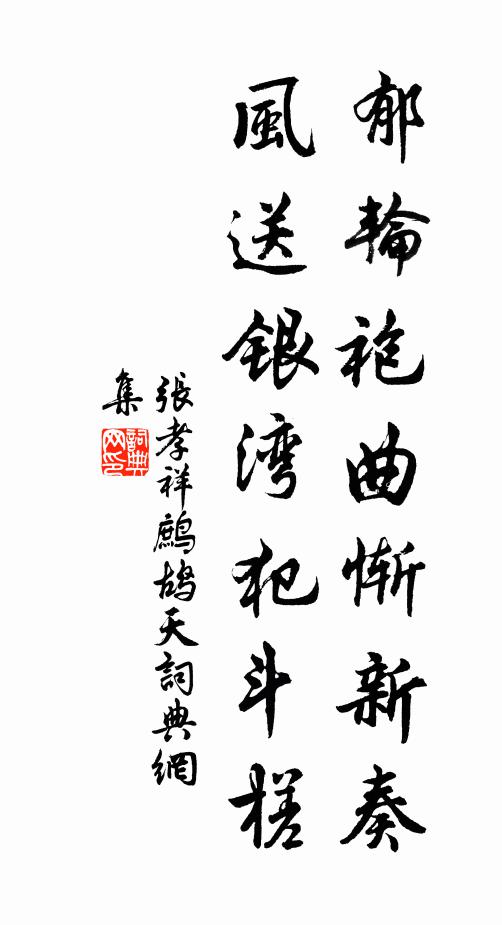 郁輪袍曲慚新奏
風送銀湾犯斗槎
張孝祥鷓鴣天詞典網
集
詞典
网印